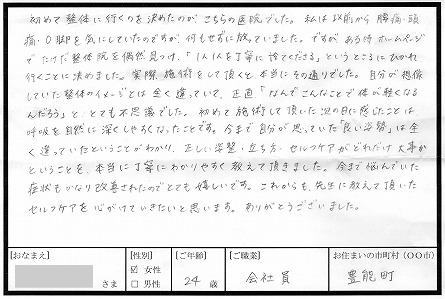 初めて整体に行くのを決めたのが、こちらの医院でした。私は以前から腰痛・頭
痛・O脚を気にしていたのですが、何もせずに放っていました。ですが、ある時ホームページ
でたけだ整体院を偶然見つけ、「1人1人を丁寧に診てくださる」というところにひかれ
行くことに決めました。実際施術をして頂くと、本当にその通りでした。自分が想像
していた整体のイメージとは全く違っていて、正直「なんでこんなことで体が軽くなる
んだろう」と、とても不思議でした。初めて施術して頂いた次の日に感じたことは
呼吸を自然に深くしやすくなったことです。今まで自分が思っていた「良い姿勢」は全
く違っていたということがわかり、正しい姿勢・立ち方・セルフケアがどれだけ大事か
ということを、本当に丁寧にわかりやすく教えて頂きました。今まで悩んでいた
症状もかなり改善されたのでとても嬉しいです。これからも、先生に教えて頂いた
セルフケアを心がけていきたいと思います。ありがとうございました。
【おなまえ】 【性別】 【ご年齢】 【ご職業】 お住まいの市町村(○○市)
さま ☑ 女性 □ 男性 24 歳 会社員 豊能町